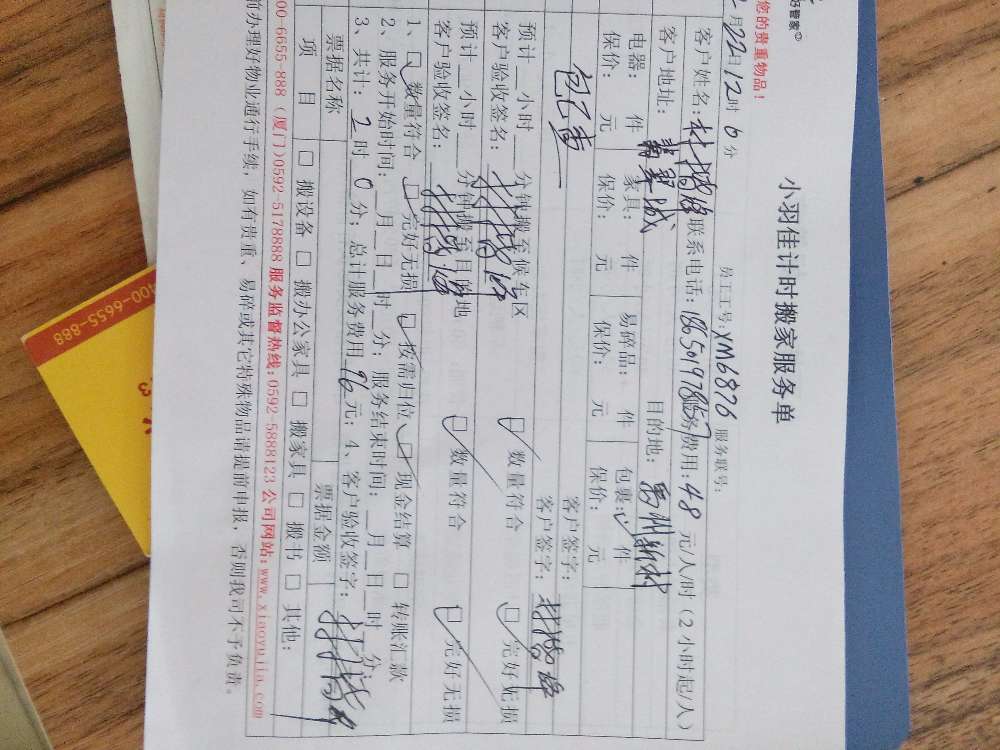 好管家
小羽佳计时搬家服务单
您的贵重物品!
月22日12时6分
员工工号:XM6876 服务联号:
客户姓名: 联系电话: 服务费用:48 元/人/时(2小时起/人)
客户地址: 目的地:
电器: 件 家具: 件 易碎品: 件 包裹: 件
保价: 元 保价: 元 保价: 元 保价: 元
客户签字:
客户签字:
预计__小时__分钟搬至候车区 □数量符合 □完好无损
客户验收签名:
预计__小时__分钟搬至目的地 □数量符合 □完好无损
客户验收签名:
1、□数量符合 □完好无损 □按需归位 □现金结算 □转账汇款
2、服务开始时间:__月__日__时__分; 服务结束时间:__月__日__时__分;
3、共计:2时0分; 总计服务费用96元; 4、客户验收签字:
票据名称 票据金额
项目 □搬设备 □搬办公家具 □搬家具 □搬书 □其他:
00-6655-888(厦门)0592-5178888 服务监督热线:0592-5888123 公司网站:www.xiaoyujia.com
前办理好物业通行手续, 如有贵重、易碎或其它特殊物品请提前申报, 否则我司不予负责。
400-6655-888